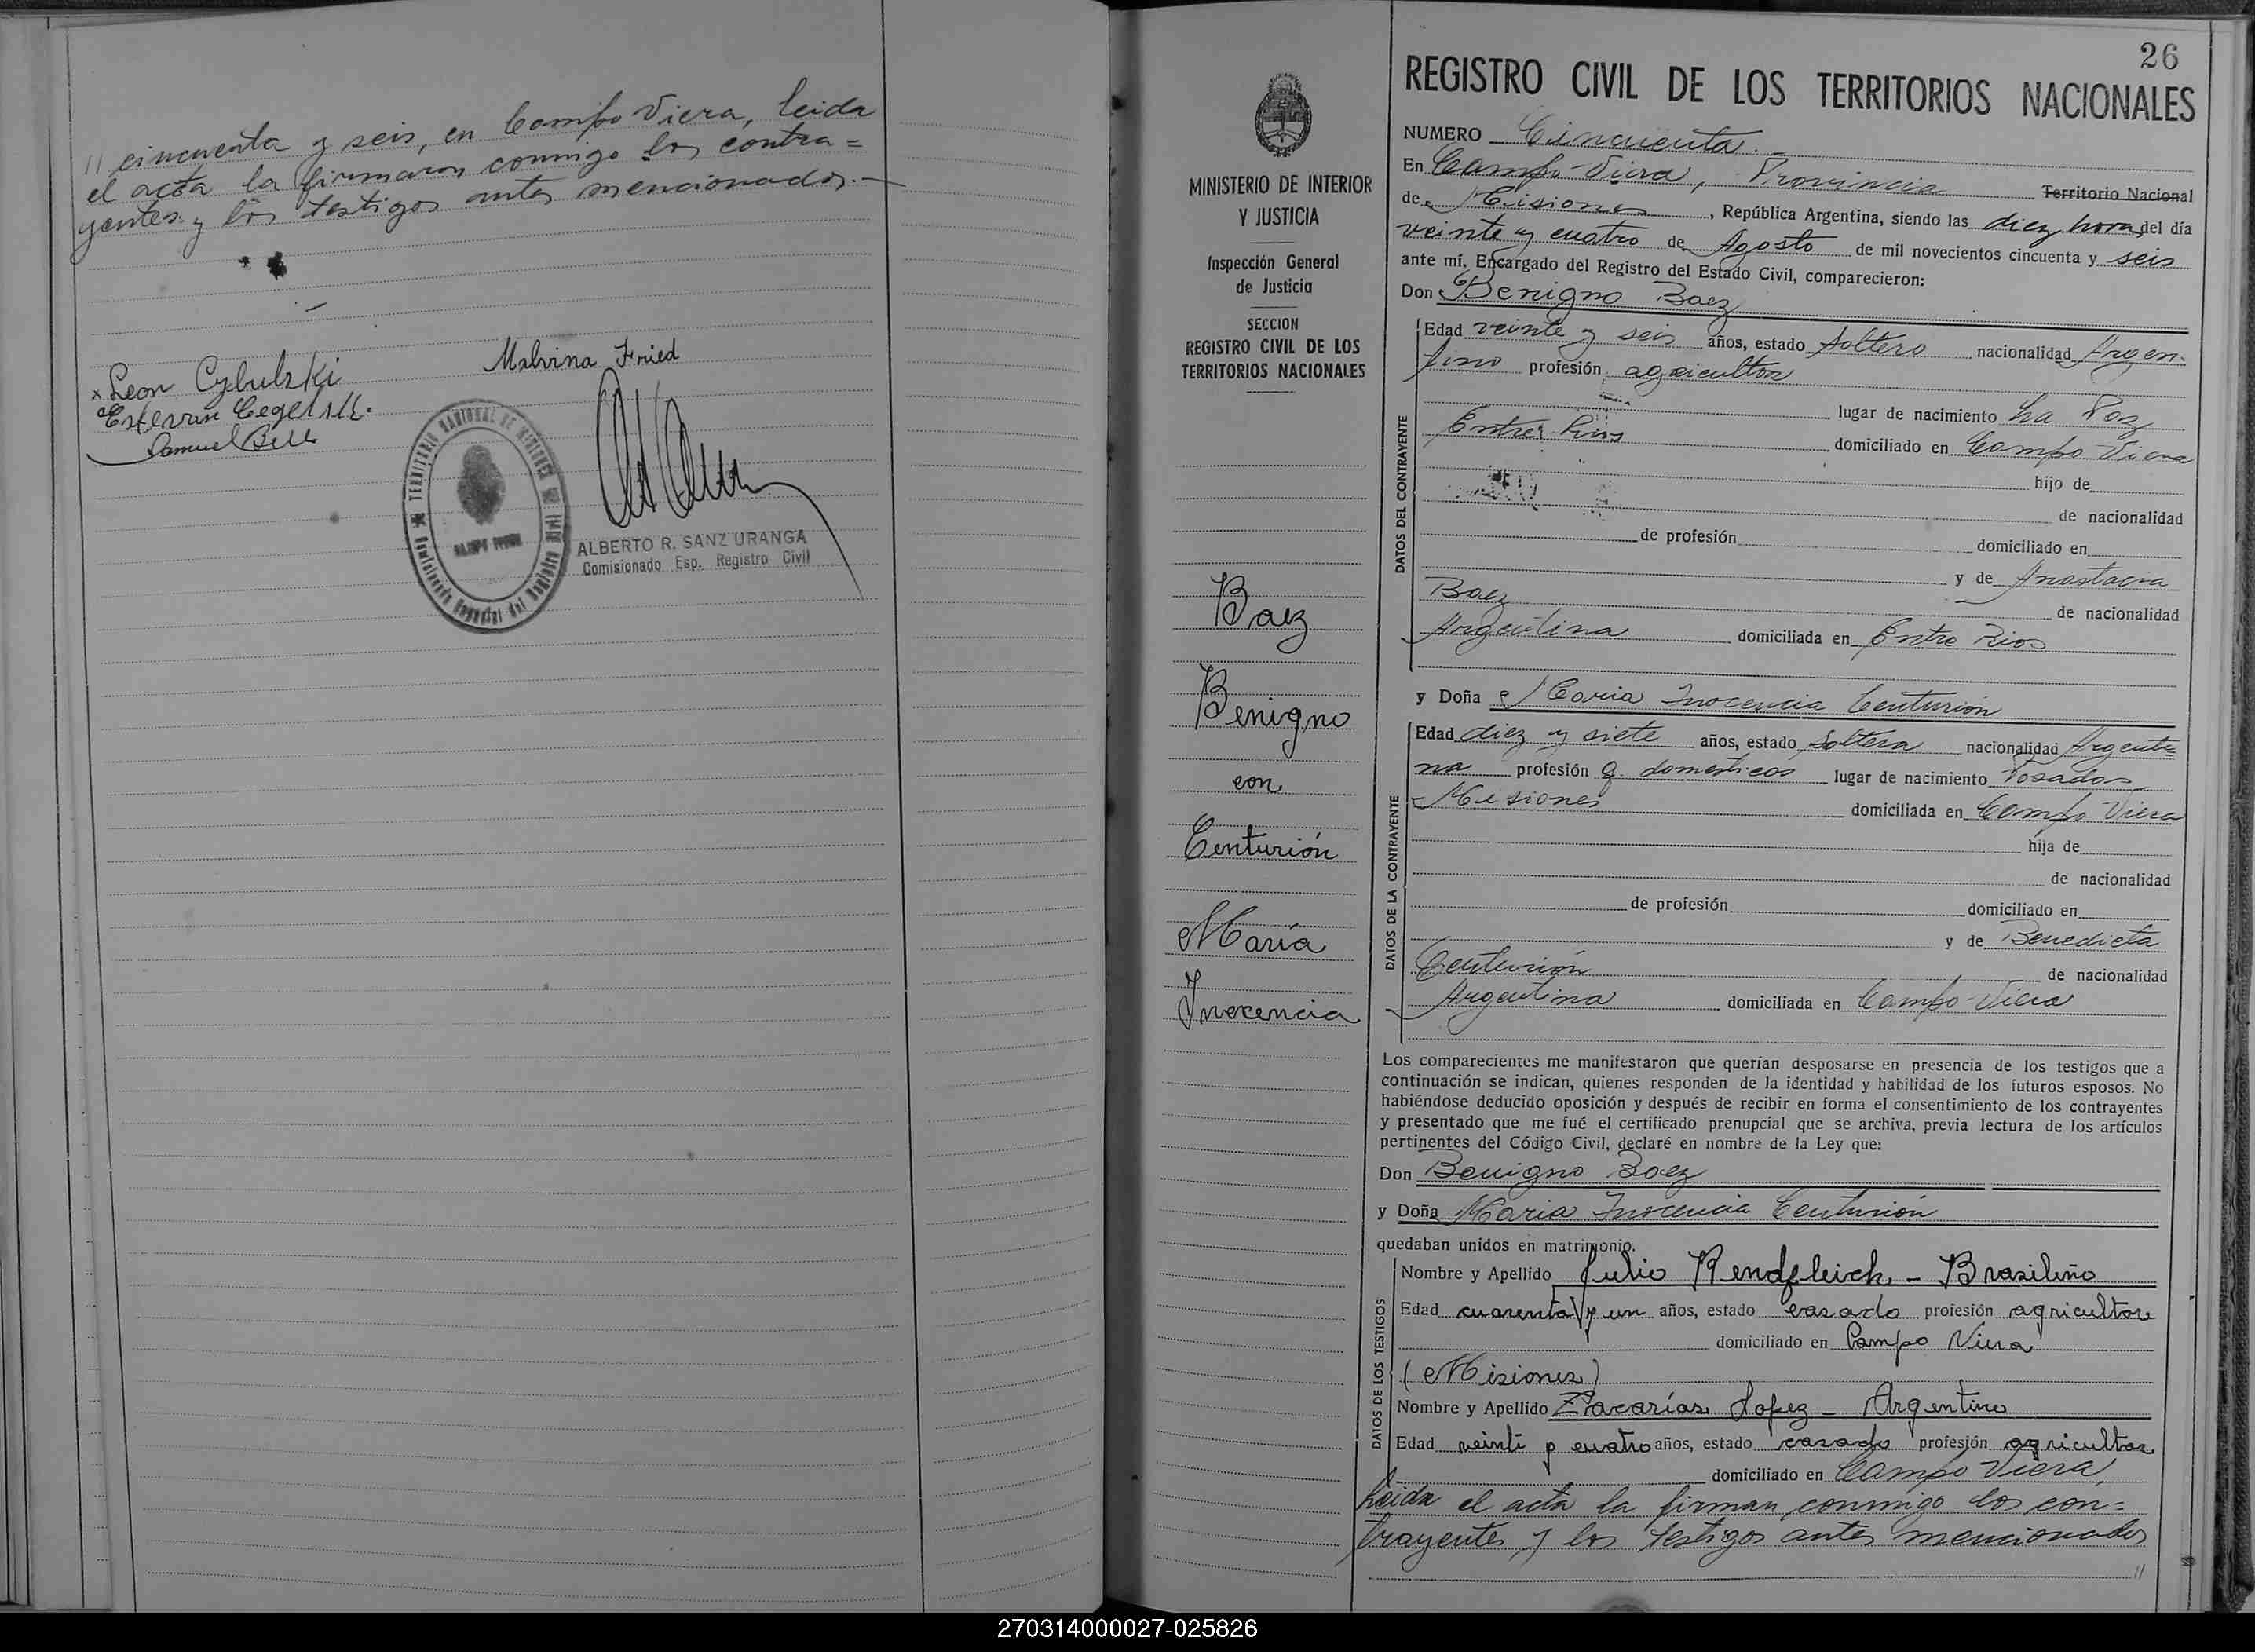 // cincuenta y seis, en Campo Viera, leida
el acta la firmaron conmigo los contra=
yentes y los testigos antes mencionados.—
Malvina Fried
x Leon Cybulzki
Samuel
TERRITORIO NACIONAL DE MISIONES
CAMPO VIERA
ALBERTO R. SANZ URANGA
Comisionado Esp. Registro Civil
26
REGISTRO CIVIL DE LOS TERRITORIOS NACIONALES
MINISTERIO DE INTERIOR
Y JUSTICIA
Inspección General
de Justicia
SECCION
REGISTRO CIVIL DE LOS
TERRITORIOS NACIONALES
Baez
Benigno
con
Centurión
María
Inocencia
NUMERO Cincuenta.—
En Campo-Viera, Provincia Territorio Nacional
de Misiones, República Argentina, siendo las diez horas del día
veinte y cuatro de Agosto de mil novecientos cincuenta y seis
ante mí, Encargado del Registro del Estado Civil, comparecieron:
Don Benigno Baez
DATOS DEL CONTRAYENTE
Edad veinte y seis años, estado soltero nacionalidad Argen-
tino profesión agricultor
lugar de nacimiento La Paz
Entre Rios domiciliado en Campo Viera
hijo de
de nacionalidad
de profesión domiciliado en
y de Anastacia
Baez de nacionalidad
Argentina domiciliada en Entre Rios
y Doña Maria Inocencia Centurión
DATOS DE LA CONTRAYENTE
Edad diez y siete años, estado soltera nacionalidad Argenti=
na profesión q. domesticos lugar de nacimiento Posadas
Misiones domiciliada en Campo Viera
hija de
de nacionalidad
de profesión domiciliado en
y de Benedicta
Centurión de nacionalidad
Argentina domiciliada en Campo-Viera
Los comparecientes me manifestaron que querían desposarse en presencia de los testigos que a
continuación se indican, quienes responden de la identidad y habilidad de los futuros esposos. No
habiéndose deducido oposición y después de recibir en forma el consentimiento de los contrayentes
y presentado que me fué el certificado prenupcial que se archiva, previa lectura de los artículos
pertinentes del Código Civil, declaré en nombre de la Ley que:
Don Benigno Baez
y Doña Maria Inocencia Centurión
quedaban unidos en matrimonio.
DATOS DE LOS TESTIGOS
Nombre y Apellido Julio Rendfleich - Brasileño
Edad cuarenta y un años, estado casado profesión agricultor
domiciliado en Campo Viera
(Misiones)
Nombre y Apellido Zacarías Lopez - Argentino
Edad veinti y cuatro años, estado casado profesión agricultor
domiciliado en Campo Viera,
leida el acta la firman conmigo los con=
trayentes y los testigos antes mencionados
//
270314000027-025826